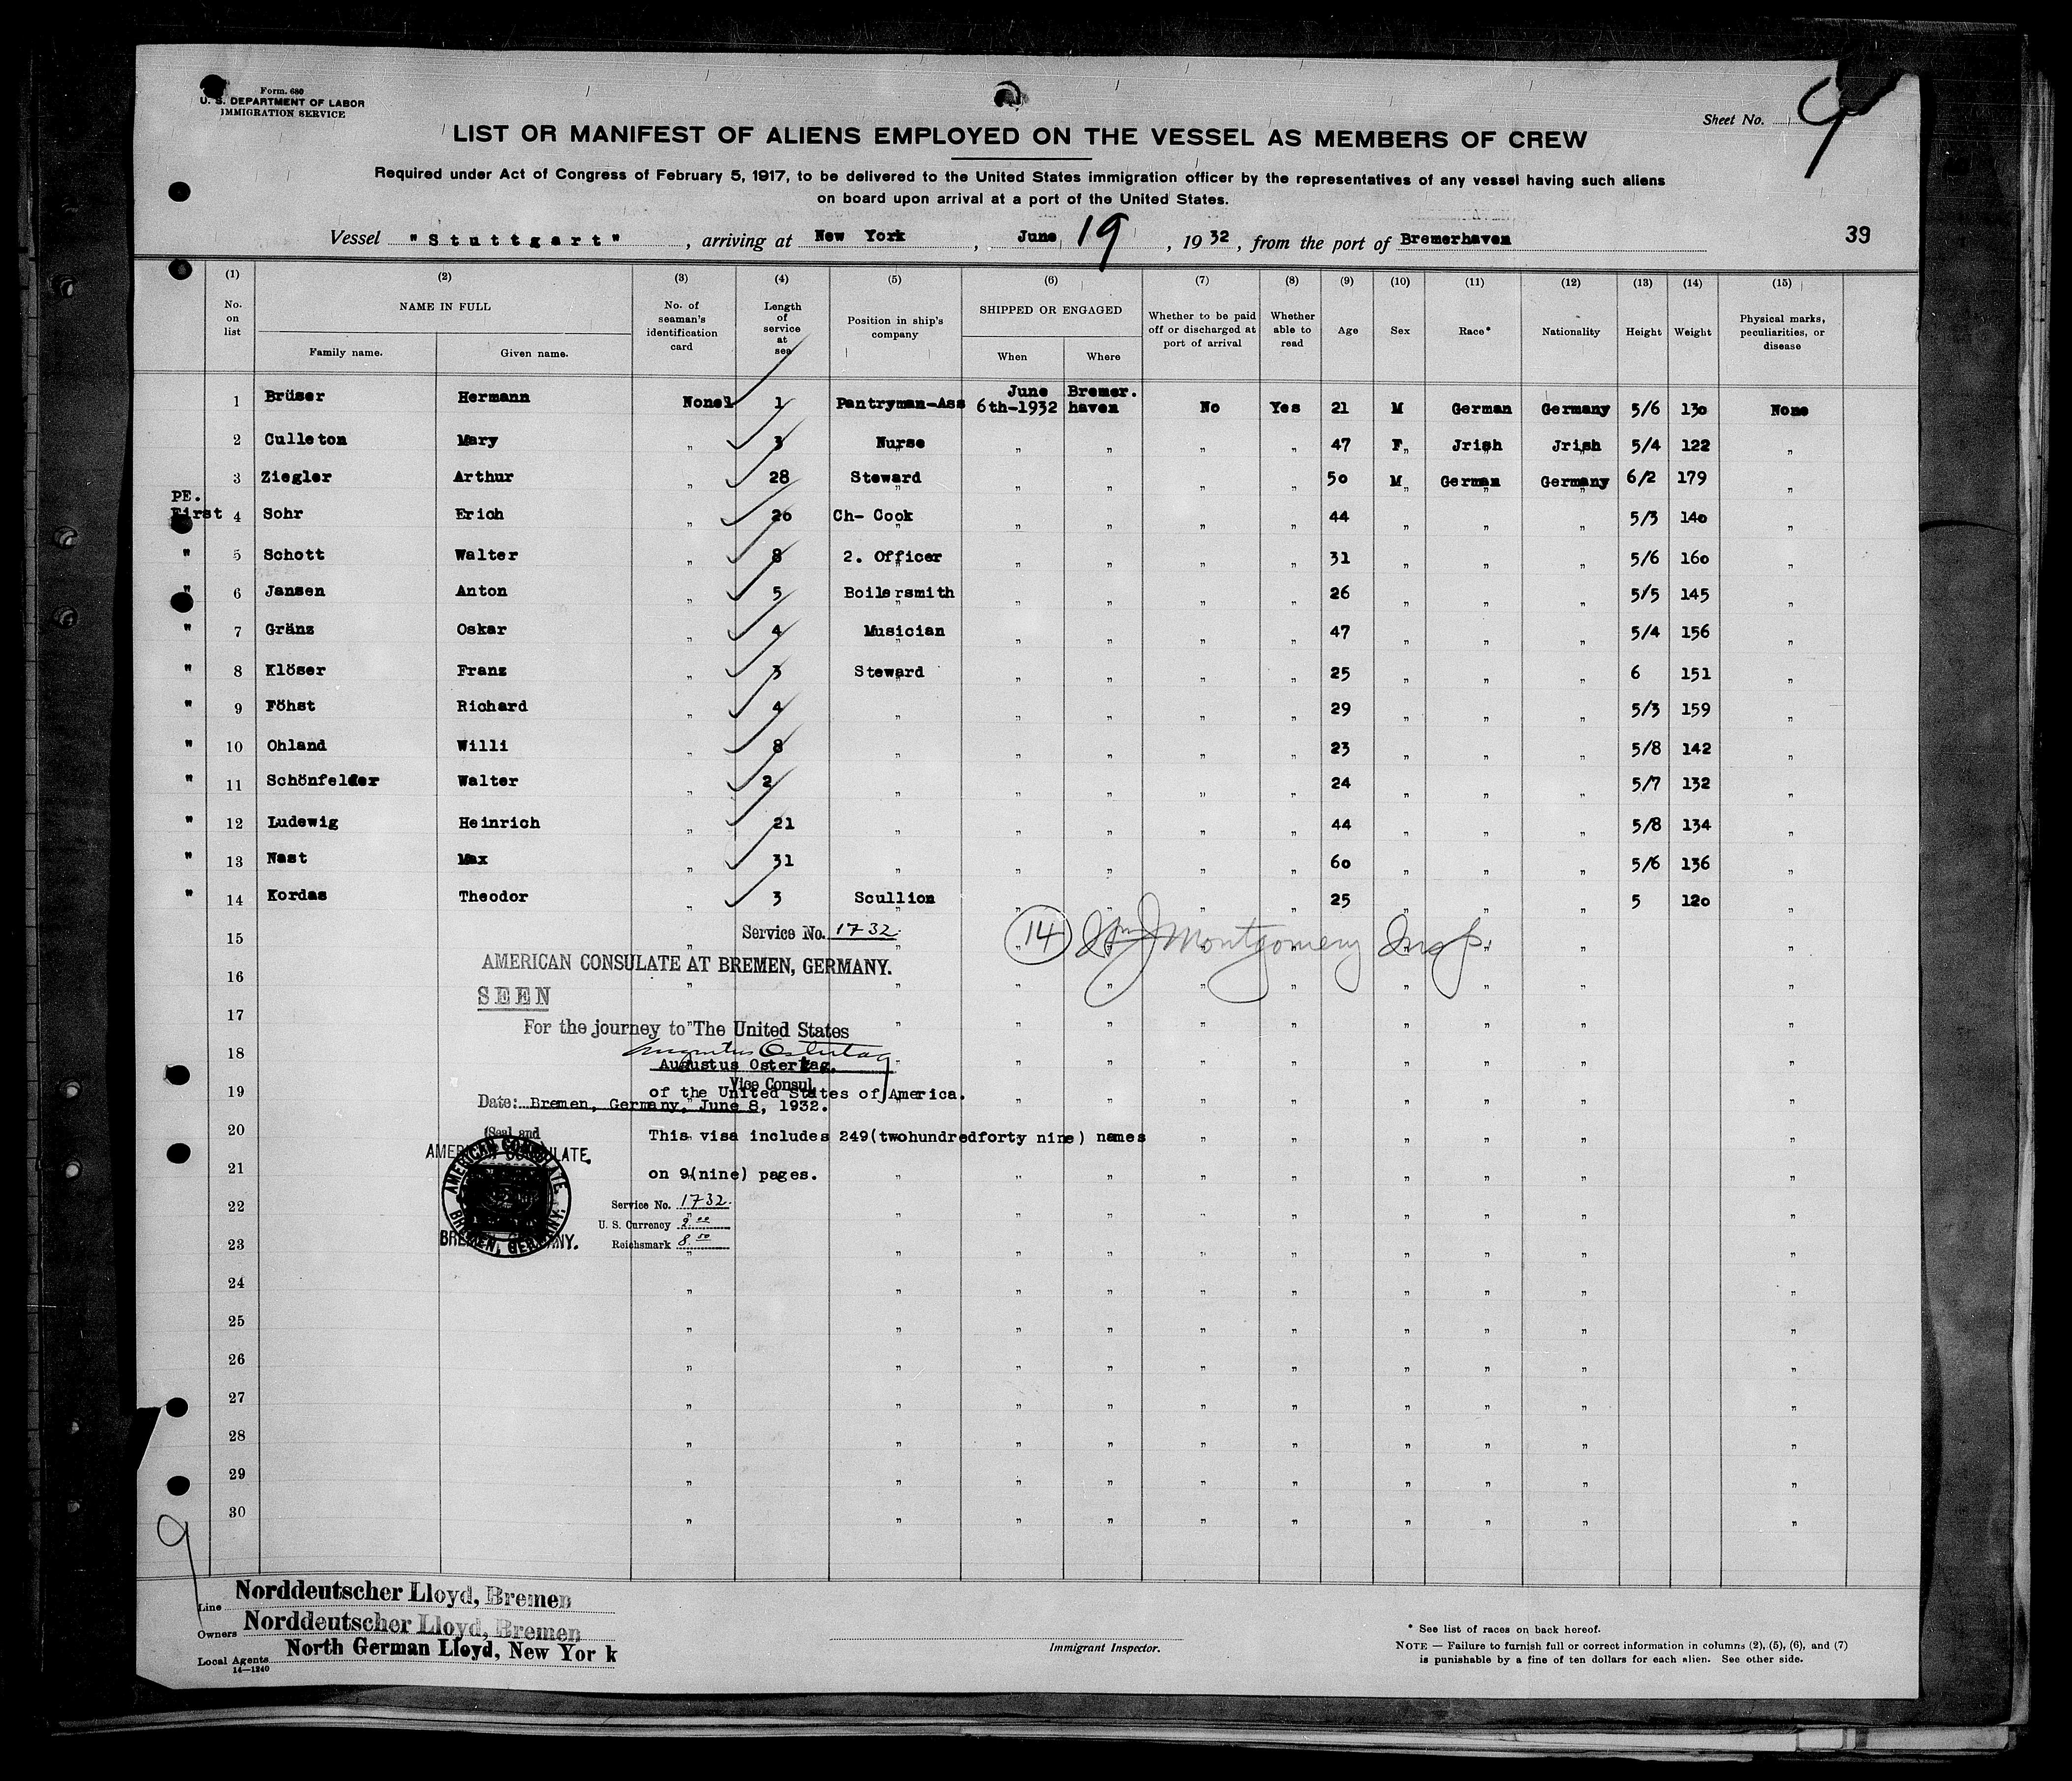 Form. 680
U. S. DEPARTMENT OF LABOR
IMMIGRATION SERVICE
Sheet No. 9
LIST OR MANIFEST OF ALIENS EMPLOYED ON THE VESSEL AS MEMBERS OF CREW
Required under Act of Congress of February 5, 1917, to be delivered to the United States immigration officer by the representatives of any vessel having such aliens
on board upon arrival at a port of the United States.
Vessel "Stuttgart", arriving at New York, June 19, 1932, from the port of Bremerhaven 39
(1) (2) (3) (4) (5) (6) (7) (8) (9) (10) (11) (12) (13) (14) (15)
No. on list NAME IN FULL Family name. Given name. No. of seaman's identification card Length of service at sea Position in ship's company SHIPPED OR ENGAGED When Where Whether to be paid off or discharged at port of arrival Whether able to read Age Sex Race* Nationality Height Weight Physical marks, peculiarities, or disease
1 Brüser Hermann None 1 Pantryman-Ass June 6th-1932 Bremer. haven No Yes 21 M German Germany 5/6 130 None
2 Culleton Mary " 3 Nurse " " " " 47 F " Jrish " Jrish " 5/4 122 "
3 Ziegler Arthur " 28 Steward " " " " " 50 M " German " Germany " 6/2 179 "
PE. First 4 Sohr Erich " 26 Ch- Cook " " " " " 44 " " " 5/3 140 "
" 5 Schott Walter " 8 2. Officer " " " " " 31 " " " 5/6 160 "
" 6 Jansen Anton " 5 Boilersmith " " " " " 26 " " " 5/5 145 "
" 7 Gränz Oskar " 4 Musician " " " " " 47 " " " 5/4 156 "
" 8 Klöser Franz " 3 Steward " " " " " 25 " " " 6 151 "
" 9 Föhst Richard " 4 " " " " " 29 " " " 5/3 159 "
" 10 Ohland Willi " 8 " " " " " 23 " " " 5/8 142 "
" 11 Schönfelder Walter " 2 " " " " " 24 " " " 5/7 132 "
" 12 Ludewig Heinrich " 21 " " " " " 44 " " " 5/8 134 "
" 13 Nast Max " 31 " " " " " 60 " " " 5/6 136 "
" 14 Kordas Theodor " 3 Scullion " " " " " 25 " " " 5 120 "
15 Service No. 1732. 14 Wm J Montgomery Insp.
16 AMERICAN CONSULATE AT BREMEN, GERMANY.
SEEN
17 For the journey to The United States
18 Augustus Ostertag
Augustus Ostertag.
Vice Consul
19 of the United States of America.
Date: Bremen, Germany, June 8, 1932.
20 (Seal and This visa includes 249(twohundredforty nine) names
AMERICAN CONSULATE.
AMERICAN CONSULATE. BREMEN, GERMANY.
21 on 9(nine) pages.
22 Service No. 1732.
U. S. Currency 2.00
23 BREMEN, GERMANY. Reichsmark 8.50
24
25
26
27
28
29
30
9
Line Norddeutscher Lloyd, Bremen
Owners Norddeutscher Lloyd, Bremen
Local Agents North German Lloyd, New York
14—1240
Immigrant Inspector.
* See list of races on back hereof.
NOTE — Failure to furnish full or correct information in columns (2), (5), (6), and (7)
is punishable by a fine of ten dollars for each alien. See other side.